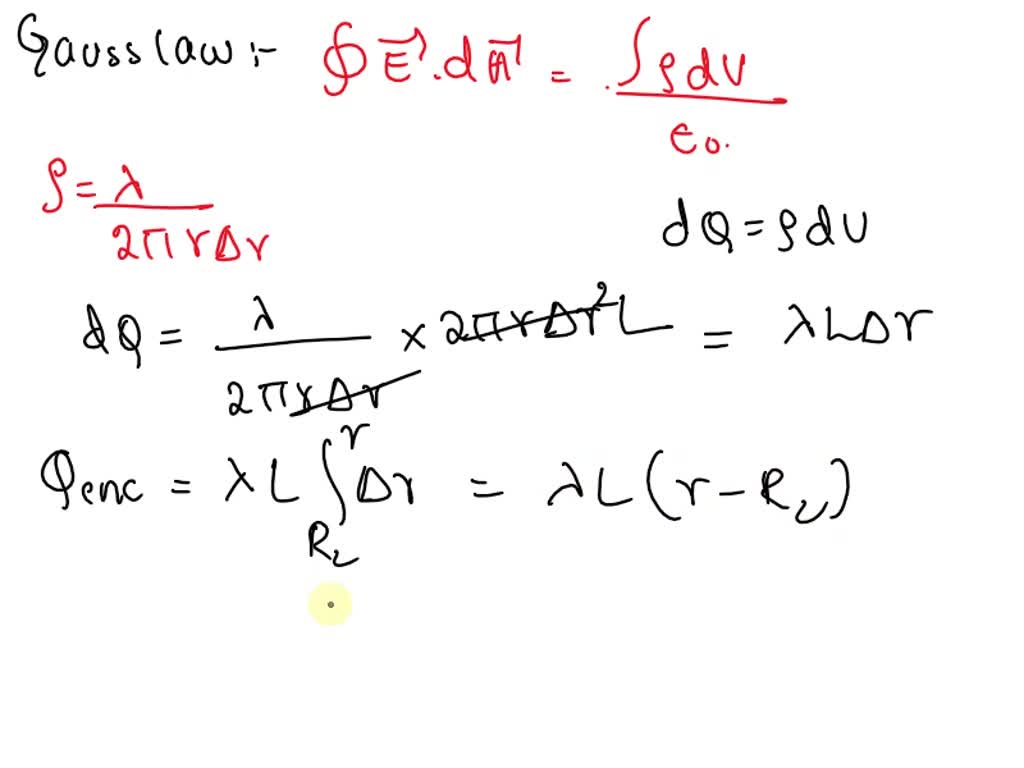 Gauss law :- ∮ E⃗ . dA⃗ = ∫ρdV / ε0.
ρ = λ / 2πrΔr
dQ = ρdV
dQ = λ / 2πrΔr × 2πrΔr²L = λLΔr
Qenc = λL ∫_{R2}^{r} Δr = λL(r - R2)